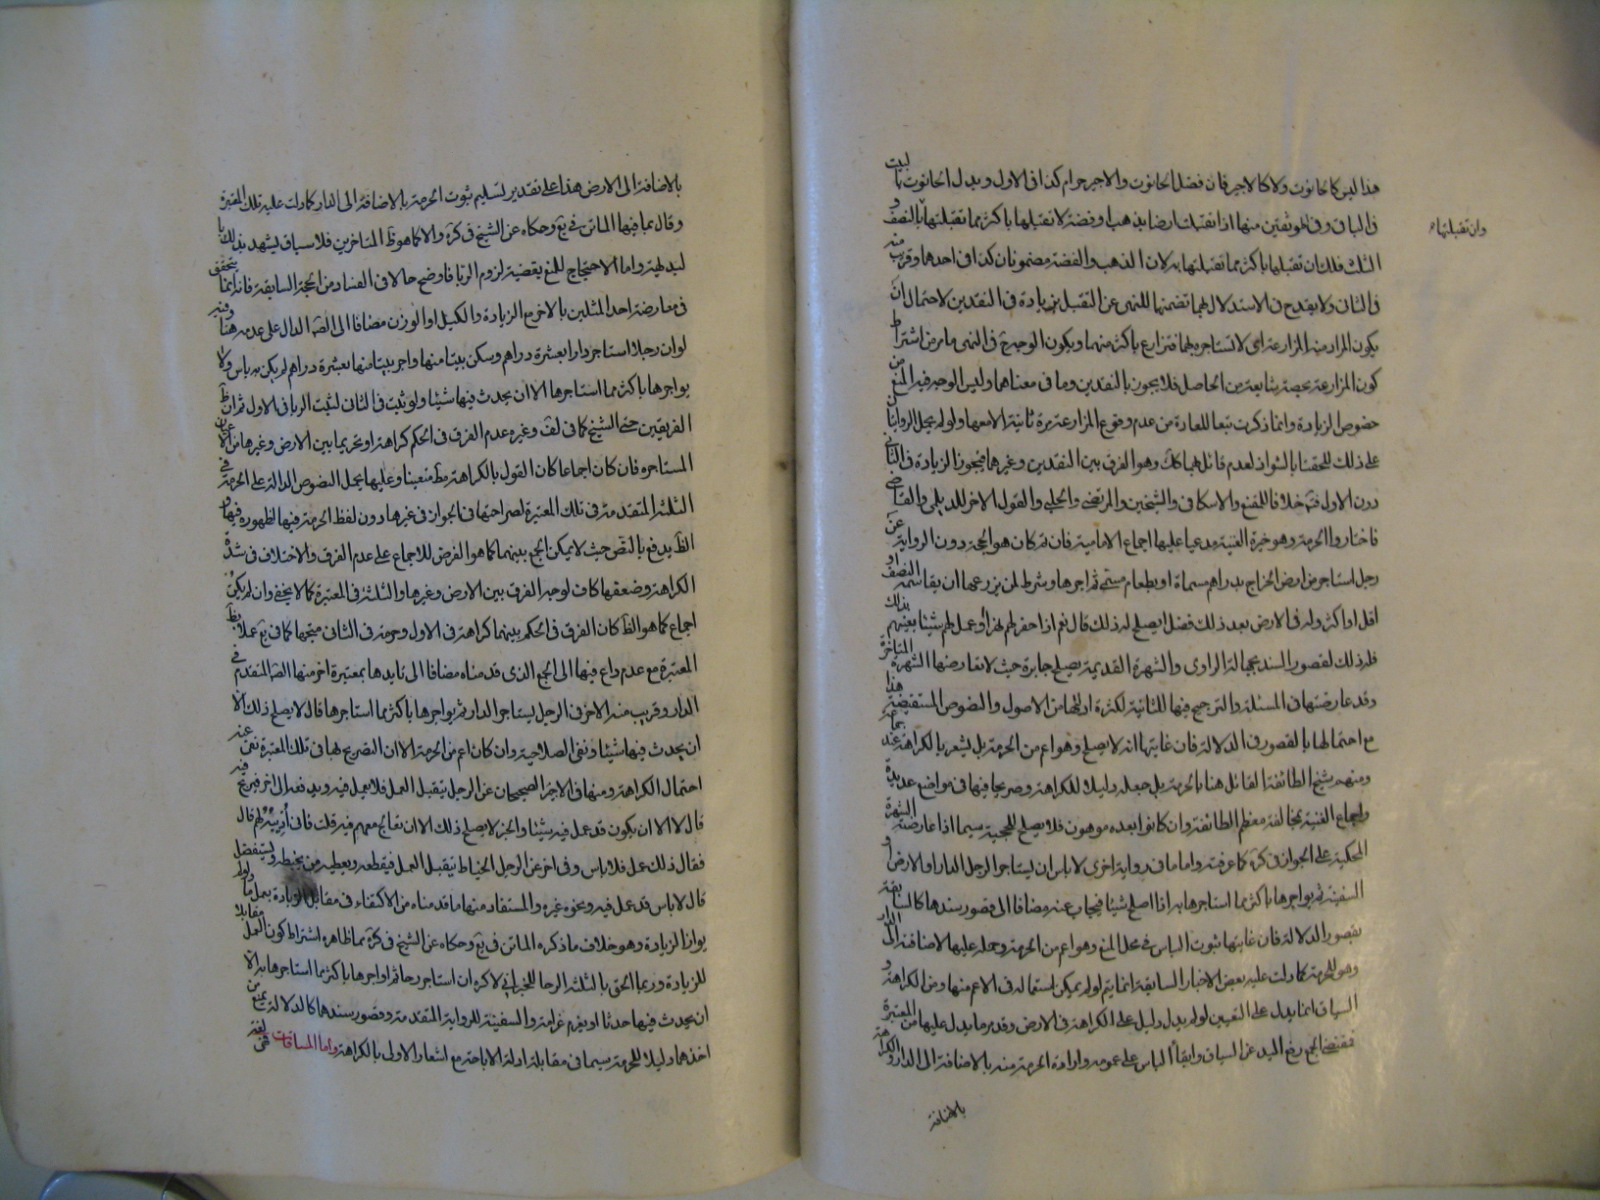 هذا ليس كالحانوت ولا كالاجير فان فضل الحانوت والاجير حرام كذا فى الاول وبدل الحانوت بالبيت
فى الباقى وفى الموثقين منها اذا تقبلت ارضا بذهب او فضة لا تقبلها باكثر مما تقبلتها بالنصف و
وان تقبلتها
الثلث فلك ان تقبلها باكثر مما تقبلتها به لان الذهب والفضة مضمونان كذا فى احدهما وقريب منه
فى الثانى ولا يقدح فى الاستدلال بهما تضمنهما للنهى عن التقبل بزيادة فى النقدين لاحتمال ان
يكون المراد من المزارعة اى لا تستاجره بهما فتزارع باكثر منهما ويكون الوجه فى النهى ما مر من اشتراط
كون المزارعة بحصة مشاعة من الحاصل فلا يجوز بالنقدين وما فى معناهما وليس الوجه فيه المنع من
خصوص الزيادة وانما ذكرت تبعا للعادة من عدم وقوع المزارعة مرة ثانية الا معها ولو لم يحمل الروايتان
على ذلك للحقتا بالشواذ لعدم قائل بهما كك وهو الفرق بين النقدين وغيرهما فيجوز الزيادة فى الثانى
دون الاول فتم خلافا للمقنع والاسكافى والشيخين والمرتضى والحلبى والقول الاخر للديلمى والقاضى
فاختاروا الحرمة وهو خيرة الغنية مدعيا عليها اجماع الامامية فان تم كان هو الحجة دون الرواية عن
رجل استاجر من ارض الخراج بدراهم مسماة او بطعام مسمى ثم اجرها وشرط لمن يزرعها ان يقاسمه النصف او
اقل او اكثر وله فى الارض بعد ذلك فضل ايصلح له ذلك قال نعم اذا حفر لهم نهرا او عمل لهم شيئا يعينهم بذلك
فله ذلك لقصور السند بجهالة الراوى والشهرة القديمة يصلح جابرة حيث لا تعارضها الشهرة المتاخرة
وقد عارضتها فى المسئلة والترجيح فيها للثانية لكثرة ادلتها من الاصول والنصوص المستفيضة هذا
مع احتمالها بالقصور فى الدلالة فان غايتها انه لا يصلح وهو اعم من الحرمة بل يشعر بالكراهة عند جماعة
ومنهم شيخ الطائفة القائل هنا بالحرمة بل جعله دليلا للكراهة وصريحا فيها فى مواضع عديدة
واجماع الغنية بمخالفة معظم الطائفة وان كانوا بعده موهون فلا يصلح للحجية سيما اذا عارضته الشهرة
المحكية على الجواز فى كره كما عرفته واما ما فى رواية اخرى لا باس ان يستاجر الرجل الدار او الارض او
السفينة ثم يواجرها باكثر مما استاجرها به اذا اصلح شيئا فيجاب عنه مضافا الى قصور سندها كالسابقة
بقصور الدلالة فان غايتها ثبوت الباس فى محل المنع وهو اعم من الحرمة وحمله عليها لاضافته الى الدار
وهو للحرمة كما دلت عليه بعض الاخبار السابقة انما يتم لو لم يمكن استعماله فى الاعم منها ومن الكراهة و
السياق انما يدل على التعيين لو لم يدل دليل على الكراهة فى الارض وقد مر ما يدل عليها من المعتبرة
فمقتضى الجمع رفع اليد عن السياق وابقاء الباس على عمومه وارادة الحرمة منه بالاضافة الى الدار والكراهة
بالاضافة
بالاضافة الى الارض هذا على تقدير تسليم ثبوت الحرمة بالاضافة الى الدار كما دلت عليه تلك المعتبرة
وقال بما فيها الماتن فى يع وحكاه عن الشيخ فى كره والا كما هو ظ المتاخرين فلا سياق ليشهد بذلك يا
ليد لهية واما الاحتجاج للمنع بقضية لزوم الربا فاوضح حالا فى الفساد من الحجة السابقة فانه انما يتحقق
فى معارضة احد المثلين بالاخر مع الزيادة والكيل او الوزن مضافا الى الصحيح الدال على عدمه هنا وفيه
لو ان رجلا استاجر دارا بعشرة دراهم وسكن بيتا منها واجر بيتا منها بعشرة دراهم لم يكن به باس ولا
يواجرها باكثر مما استاجرها الا ان يحدث فيها شيئا ولو ثبت فى الثانى لثبت الربا فى الاول ثم ان ظ
الفريقين حتى الشيخ كما فى لف وغيره عدم الفرق فى الحكم كراهة او تحريما بين الارض وغيرها من الاعيان
المستاجره فان كان اجماعا كان القول بالكراهة مط متعينا وعليها يحمل النصوص الدالة على الحرمة فى
الثلثة المتقدمة فى تلك المعتبرة لصراحتها فى الجواز فى غيرها دون لفظ الحرمة فيها لظهوره فيها و
الظ يدفع بالنص حيث لا يمكن الجمع بينهما كما هو الفرض للاجماع على عدم الفرق والاختلاف فى شدة
الكراهة وضعفها كاف لوجه الفرق بين الارض وغيرها والثلثة فى المعتبرة كما لا يخفى وان لم يكن
اجماع كما هو الظ كان الفرق فى الحكم بينهما كراهة فى الاول وحرمة فى الثانى متجها كما فى يع عملا بظ
المعتبرة مع عدم داع فيها الى الجمع الذى قدمناه مضافا الى تايدها بمعتبرة اخر منها الصحيح المتقدم فى
الدار وقريب منه الاخر فى الرجل يستاجر الدار ثم يواجرها باكثر مما استاجرها قال لا يصلح ذلك الا
ان يحدث فيها شيئا ونفى الصلاحية وان كان اعم من الحرمة الا ان التصريح بها فى تلك المعتبرة نفى عنه
احتمال الكراهة ومنها فى الاجير الصحيحان عن الرجل يتقبل العمل فلا يعمل فيه ويدفعه الى اخر فيربح فيه
قال لا الا ان يكون قد عمل فيه شيئا والخبر لا يصلح ذلك الا ان تعالج معهم فيه قلت فانى اذيبه لهم قال
فقال ذلك عمل فلا باس وفى اخر عن الرجل الخياط يتقبل العمل فيقطعه ويعطيه من يخيطه ويستفضل
قال لا باس قد عمل فيه ونحوه غيره والمستفاد منها ما قدمناه من الاكتفاء فى مقابل الزيادة بعمل ما ولو لم
يوازا الزيادة وهو خلاف ما ذكره الماتن فى يع وحكاه عن الشيخ فى كره مما ظاهره اشتراط كون العمل مقابلا
للزيادة وربما الحق بالثلثة الرحا للخبر انى لاكره ان استاجر رحا ثم اواجرها باكثر مما استاجرها به الا
ان يحدث فيها حدثا او يغرم غرامة والسفينة للرواية المتقدمة وقصور سندهما كالدلالة يمنع من
اخذهما دليلا للحرمة سيما فى مقابلة ادلة الاباحة مع اشعار الاولى بالكراهة واما المساقات لغة فهى